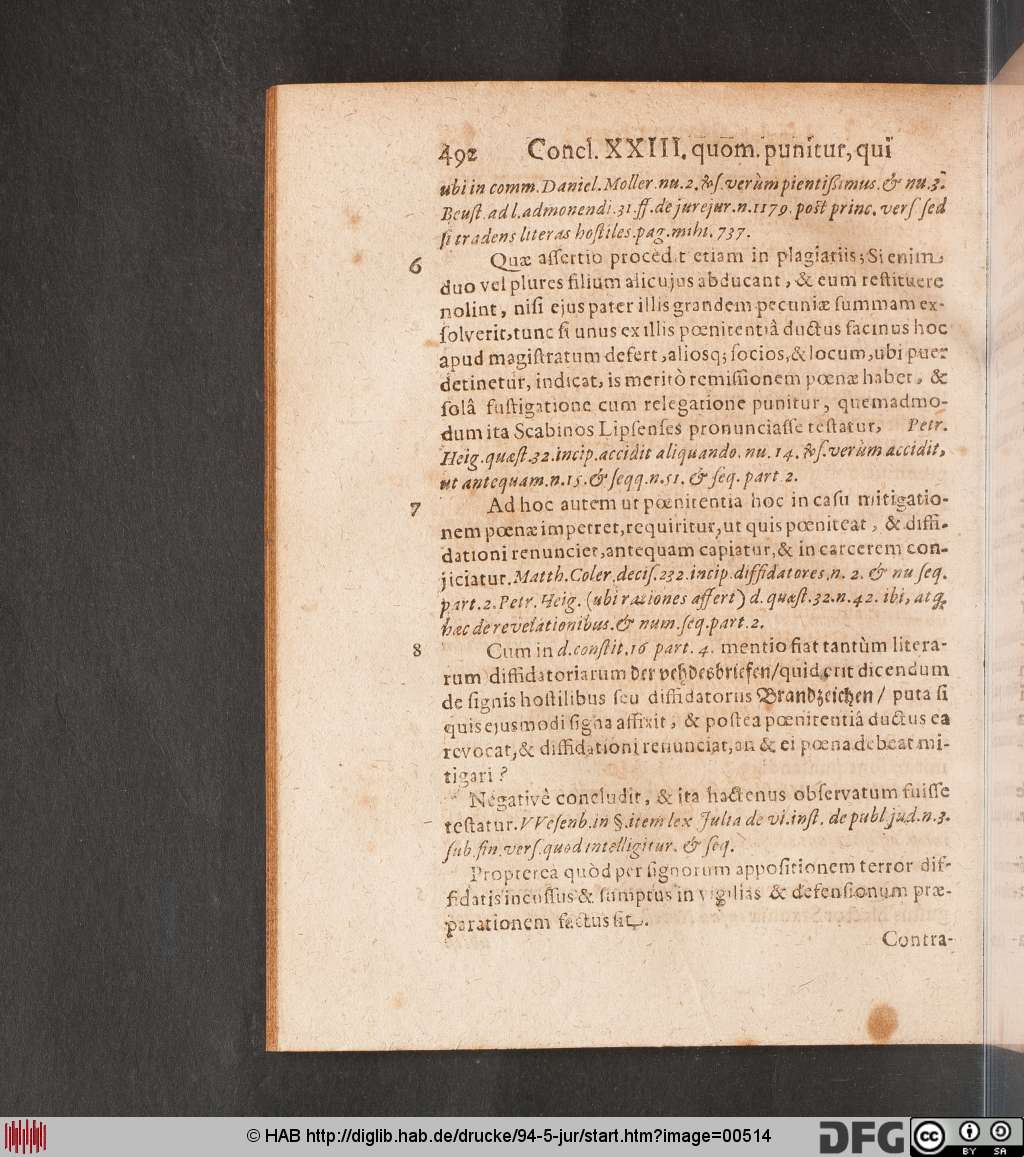 492 Concl. XXIII. quom. punitur, qui
ubi in comm. Daniel. Moller. nu. 2. & ſ. verùm pientißimus. & nu. 3.
Beuſt. ad l. admonendi. 31. ff. de jurejur. n. 1179. poſt princ. verſ. ſed
ſi tradens literas hoſtiles. pag. mihi. 737.
6 Quæ aſſertio procedit etiam in plagiatiis; Si enim
duo vel plures filium alicujus abducant, & eum reſtituere
nolint, niſi ejus pater illis grandem pecuniæ ſummam ex-
ſolverit, tunc ſi unus ex illis pœnitentiâ ductus facinus hoc
apud magiſtratum defert, alioſq; ſocios, & locum, ubi puer
detinetur, indicat, is meritò remiſſionem pœnæ habet, &
ſolâ fuſtigatione cum relegatione punitur, quemadmo-
dum ita Scabinos Lipſenſes pronunciaſſe teſtatur, Petr.
Heig. quæſt. 32. incip. accidit aliquando. nu. 14. & ſ. verùm accidit,
ut antequam. n. 15. & ſeqq. n. 51. & ſeq. part. 2.
7 Ad hoc autem ut pœnitentia hoc in caſu mitigatio-
nem pœnæ impetret, requiritur, ut quis pœniteat, & diffi-
dationi renunciet, antequam capiatur, & in carcerem con-
jiciatur. Matth. Coler. deciſ. 232. incip. diffidatores. n. 2. & nu ſeq.
part. 2. Petr. Heig. (ubi rationes affert) d. quæſt. 32. n. 42. ibi, atq;
hæc de revelationibus. & num. ſeq. part. 2.
8 Cum in d. conſtit. 16 part. 4. mentio fiat tantùm litera-
rum diffidatoriarum der vehdesbriefen/ quid erit dicendum
de ſignis hoſtilibus ſeu diffidatoriis Brandzeichen/ puta ſi
quis ejusmodi ſigna affixit, & poſtea pœnitentiâ ductus ea
revocat, & diffidationi renunciat, an & ei pœna debeat mi-
tigari?
Negativê concludit, & ita hactenus obſervatum fuiſſe
teſtatur. VVeſenb. in §. item lex Julia de vi. inſt. de publ. jud. n. 3.
ſub. fin. verſ. quod intelligitur. & ſeq.
Propterea quòd per ſignorum appoſitionem terror dif-
fidatis incuſſus & ſumptus in vigilias & defenſionum præ-
parationem factus ſit.
Contra-
© HAB http://diglib.hab.de/drucke/94-5-jur/start.htm?image=00514
DFG
cc
BY SA